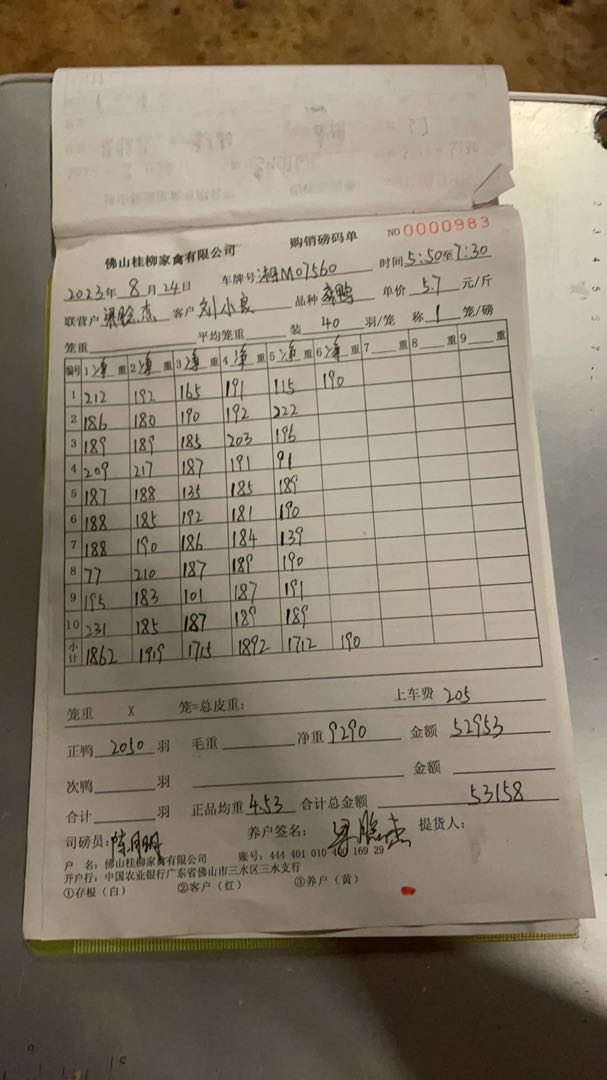 佛山桂柳家禽有限公司 购销磅码单 NO 0000983
2023年 8月 24日 车牌号 湘M07560 时间 5:50至7:30
联营户 梁脸杰 客户 刘小良 品种 鸭 单价 5.7 元/斤
笼重 平均笼重 装 40 羽/笼 称 1 笼/磅
编号 1 净 重 2 净 重 3 净 重 4 净 重 5 净 重 6 净 重 7 重 8 重 9 重
1 212 192 165 191 115 190
2 186 180 190 192 222
3 189 189 185 203 196
4 209 217 187 191 91
5 187 188 135 185 189
6 188 185 192 181 190
7 188 190 186 184 139
8 77 210 187 189 190
9 195 183 101 187 191
10 231 185 187 189 189
小计 1862 1919 1715 1892 1712 190
笼重 X 笼=总皮重: 上车费 205
正鸭 2050 羽 毛重 净重 9290 金额 52953
次鸭 羽 金额
合计 羽 正品均重 4.53 合计总金额 53158
司磅员: 养户签名: 提货人:
户 名: 佛山桂柳家禽有限公司 账号: 444 401 010 400 169 29
开户行: 中国农业银行广东省佛山市三水区三水支行
①存根（白） ②客户（红） ③养户（黄）